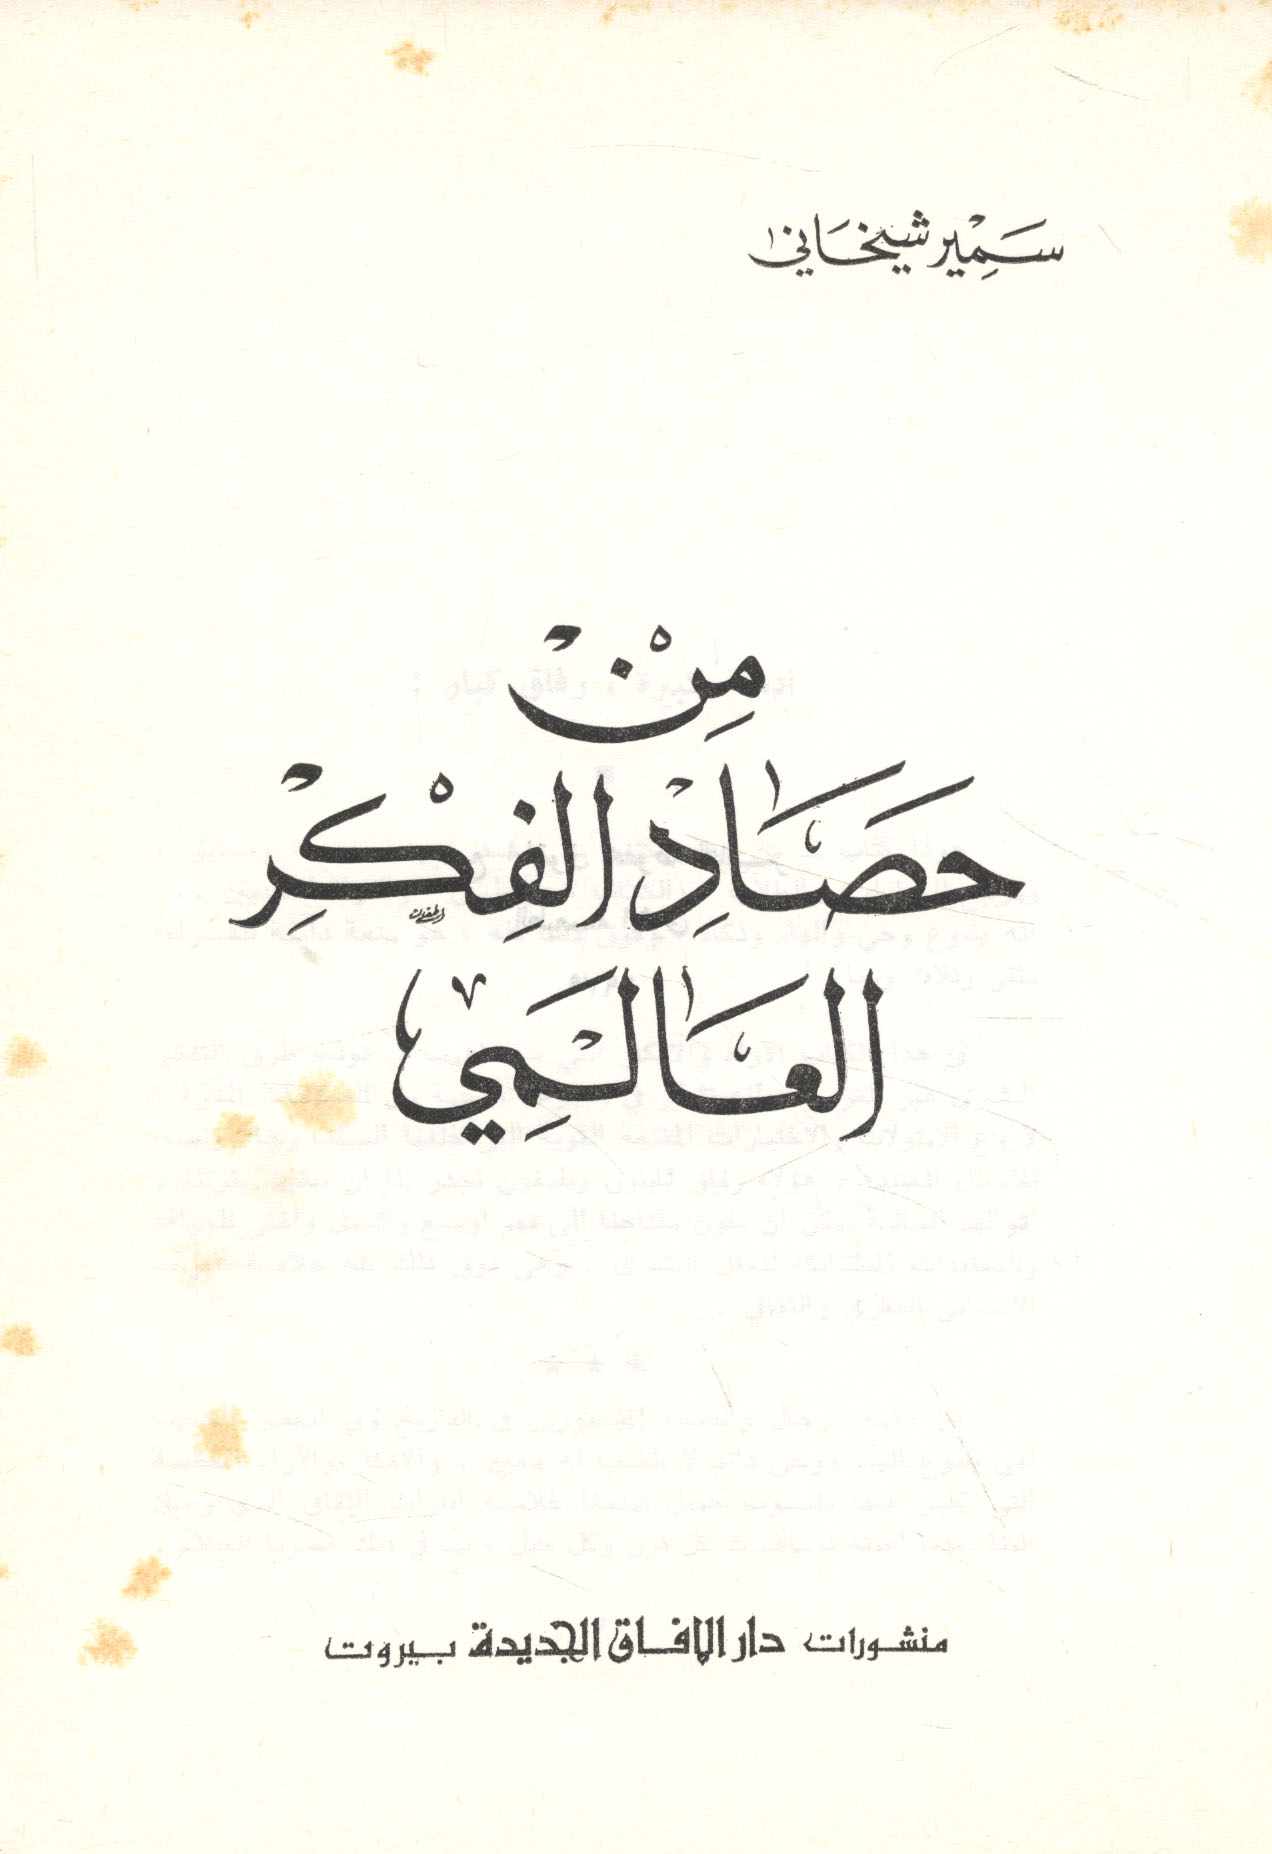 سَمِير شيخَاني
مِنْ
حَصَادِ الفِكْرِ
العَالَمِي
منشورات دار الافاق الجديدة بيروت